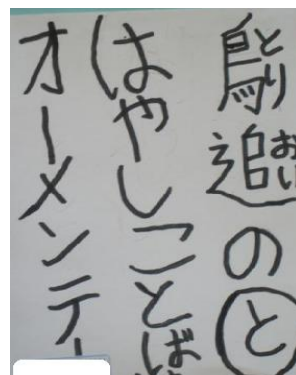 鳥追のと
はやしことば
オーメンテー